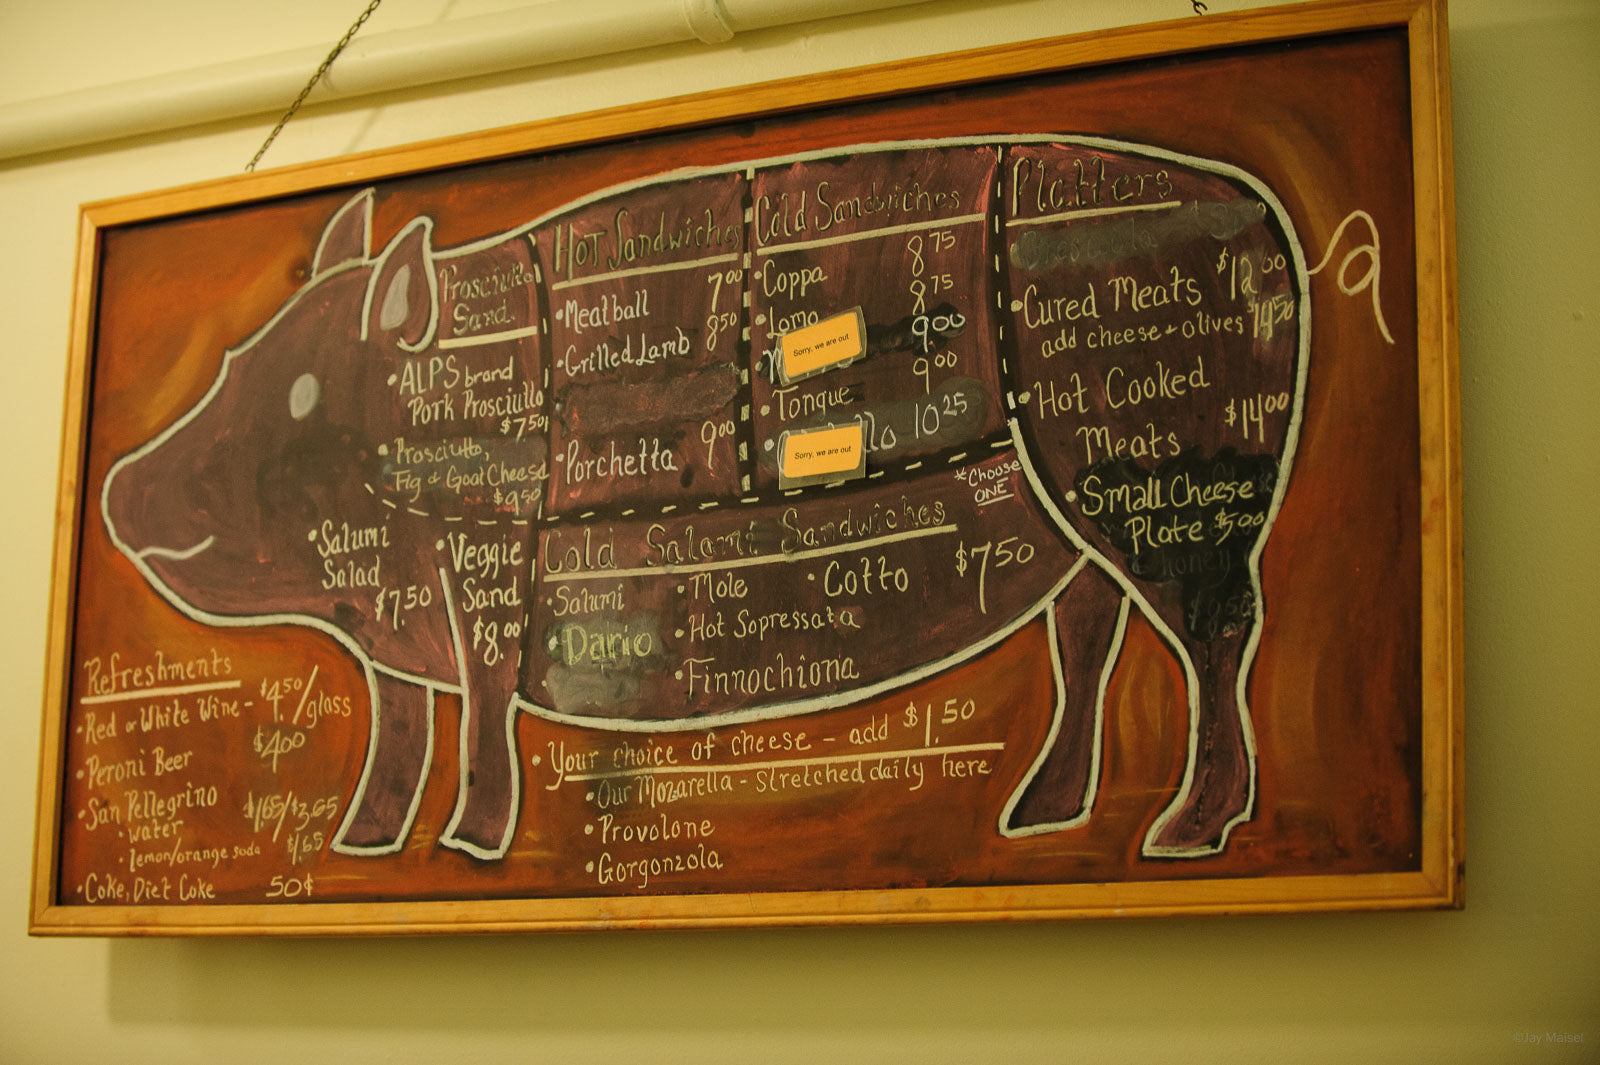 Prosciutto
Sand.
• ALPS brand
Pork Prosciutto
$7.50
• Prosciutto,
Fig & Goat Cheese
$9.50
Hot Sandwiches
• Meatball 7.00
• Grilled Lamb 8.50
• Porchetta 9.00
Cold Sandwiches
• Coppa 8.75
• Lomo 8.75
Sorry, we are out 9.00
• Tongue 9.00
Sorry, we are out 10.25
Platters
• Cured Meats $12.00
add cheese + olives $14.50
• Hot Cooked
Meats $14.00
• Small Cheese
Plate $5.00
honey
• Salumi
Salad
$7.50
• Veggie
Sand
$8.00
*Choose
ONE
Cold Salami Sandwiches
$7.50
• Salumi
• Dario
• Mole
• Hot Sopressata
• Finnochiona
• Cotto
Refreshments
• Red or White Wine - $4.50/glass
• Peroni Beer $4.00
• San Pellegrino
• water $1.65/$3.65
• lemon/orange soda $1.65
• Coke, Diet Coke 50¢
• Your choice of cheese - add $1.50
• Our Mozarella - stretched daily here
• Provolone
• Gorgonzola
©Jay Maisel